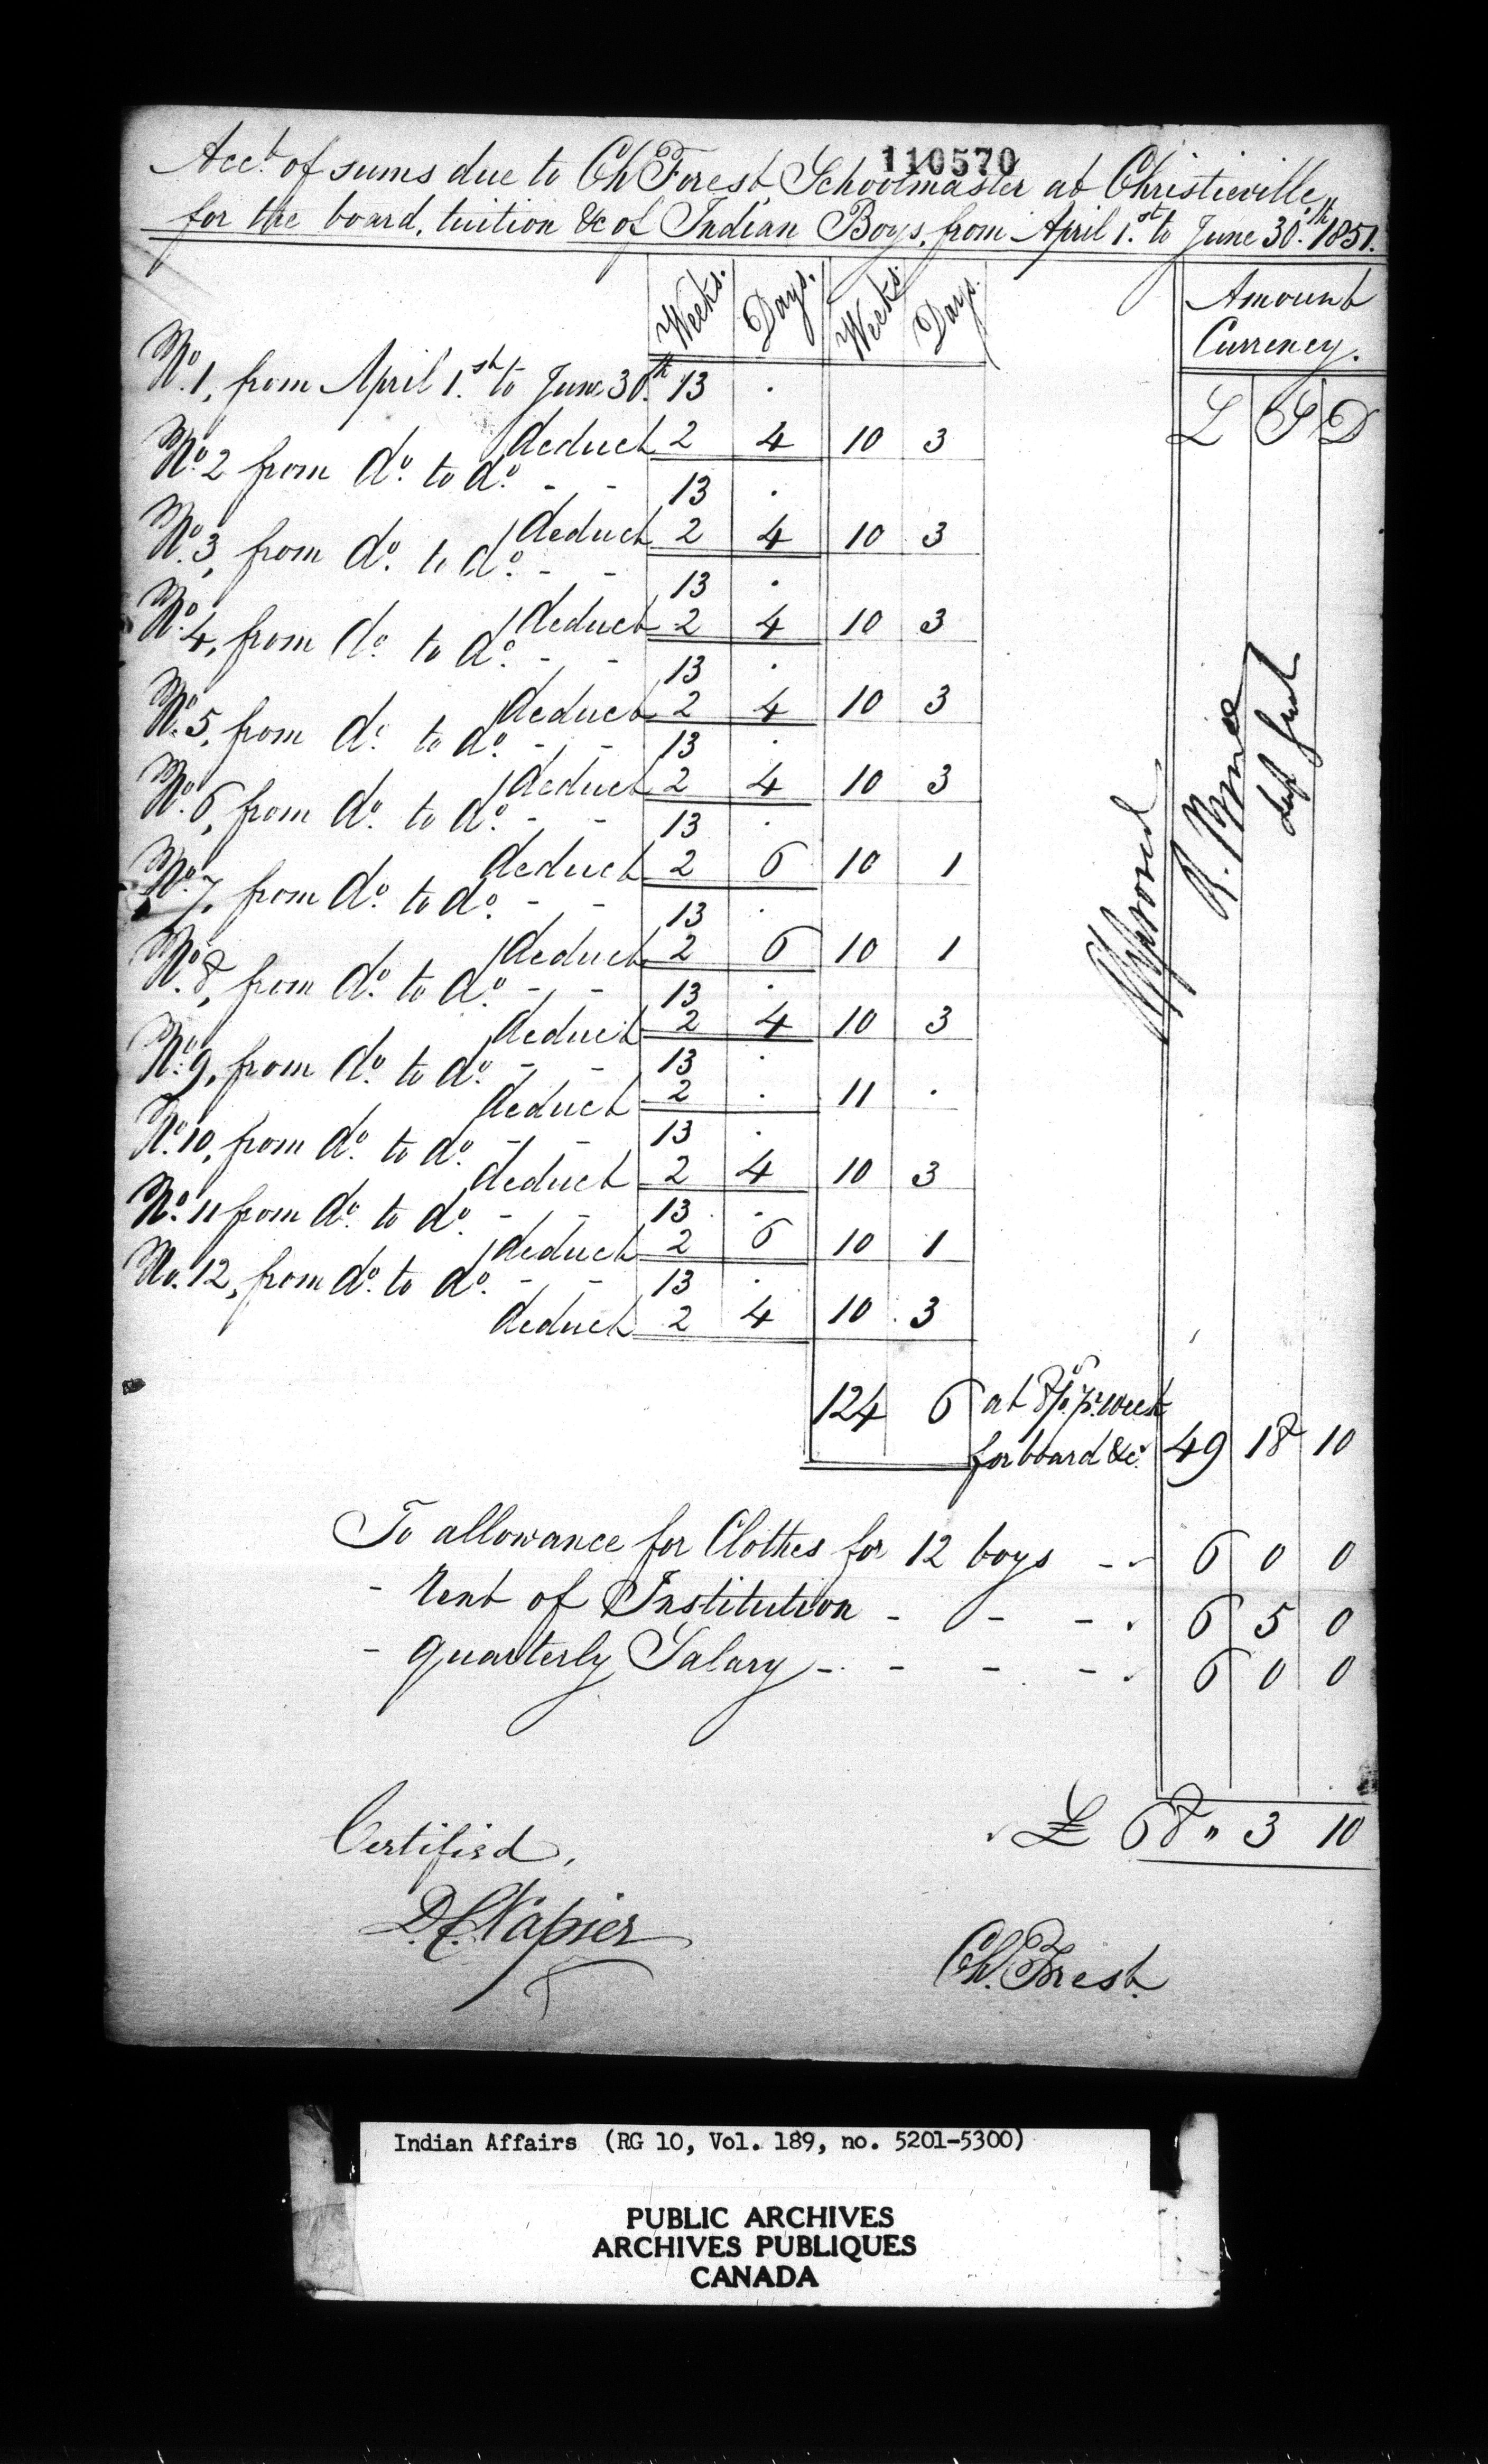 110570
Acct. of sums due to Ch Forest, Schoolmaster at Christieville,
for the board, tuition &c of Indian Boys, from April 1.st to June 30.th 1851.
Weeks. Days. Weeks. Days. Amount
Currency.
L S D
No. 1, from April 1.st to June 30.th 13 .
deduct 2 4 10 3
No. 2 from do. to do. - - 13 .
deduct 2 4 10 3
No. 3, from do. to do. - - 13 .
deduct 2 4 10 3
No. 4, from do. to do. - - 13 .
deduct 2 4 10 3
No. 5, from do. to do. - - 13 .
deduct 2 4 10 3
No. 6, from do. to do. - - 13 .
deduct 2 6 10 1
No. 7, from do. to do. - - 13 .
deduct 2 6 10 1
No. 8, from do. to do. - - 13 .
deduct 2 4 10 3
No. 9, from do. to do. - - 13 .
deduct 2 . 11 .
No. 10, from do. to do. - - 13 .
deduct 2 4 10 3
No. 11 from do. to do. - - 13 .
deduct 2 6 10 1
No. 12, from do. to do. - - 13 .
deduct 2 4 10 3
Approved
R. Bruce
124 6 at 8/. pr. week
for board &c. 49 18 10
To allowance for Clothes for 12 boys - - 6 0 0
- Rent of Institution - - - 6 5 0
- Quarterly Salary - - - - 6 0 0
£ 68 " 3 10
Certified,
D.C. Napier
Ch. Forest.
Indian Affairs (RG 10, Vol. 189, no. 5201-5300)
PUBLIC ARCHIVES
ARCHIVES PUBLIQUES
CANADA